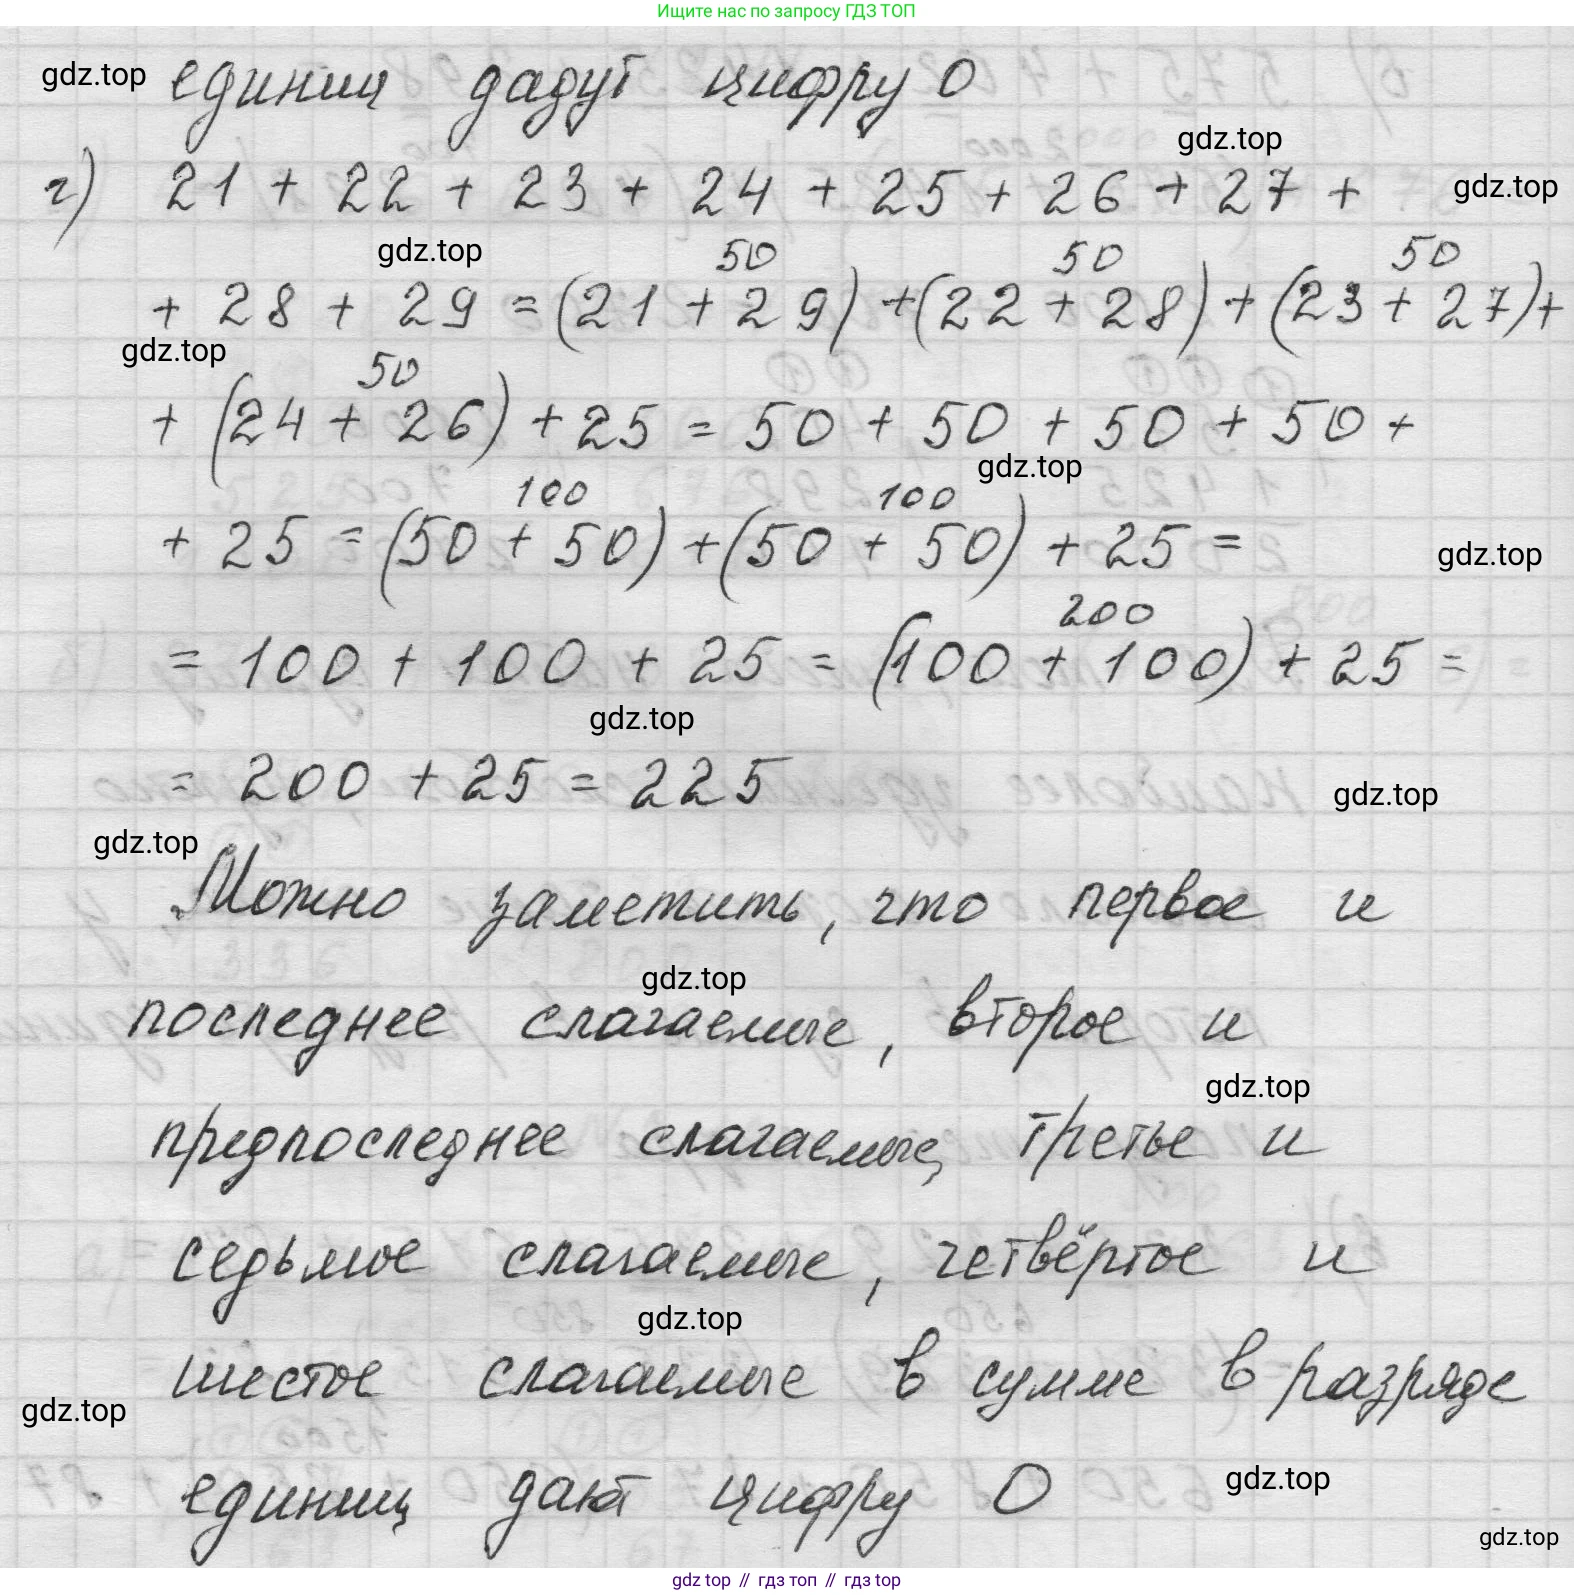 Ищите нас по запросу ГДЗ ТОП
gdz.top единиц дадут цифру 0
gdz.top
г) 21 + 22 + 23 + 24 + 25 + 26 + 27 + gdz.top
gdz.top 50 50 50
+ 28 + 29 = (21 + 29) + (22 + 28) + (23 + 27) +
gdz.top 50
+ (24 + 26) + 25 = 50 + 50 + 50 + 50 +
gdz.top
100 100
+ 25 = (50 + 50) + (50 + 50) + 25 = gdz.top
200
= 100 + 100 + 25 = (100 + 100) + 25 =
gdz.top
= 200 + 25 = 225 gdz.top
gdz.top
Можно заметить, что первое и
gdz.top
последнее слагаемые, второе и
gdz.top
предпоследнее слагаемые, третье и
седьмое слагаемые, четвёртое и
gdz.top
шестое слагаемые в сумме в разряде
gdz.top
единиц дают цифру 0 gdz.top
gdz.top
gdz top // гдз топ // гдз top